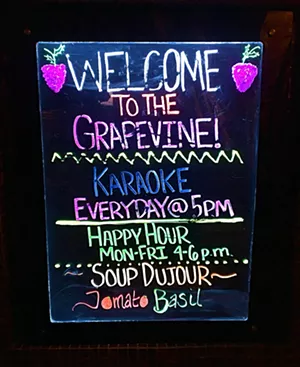 WELCOME
TO THE
GRAPEVINE!
KARAOKE
EVERYDAY @ 5PM
HAPPY HOUR
MON-FRI 4-6 p.m.
~SOUP DUJOUR~
~Tomato Basil